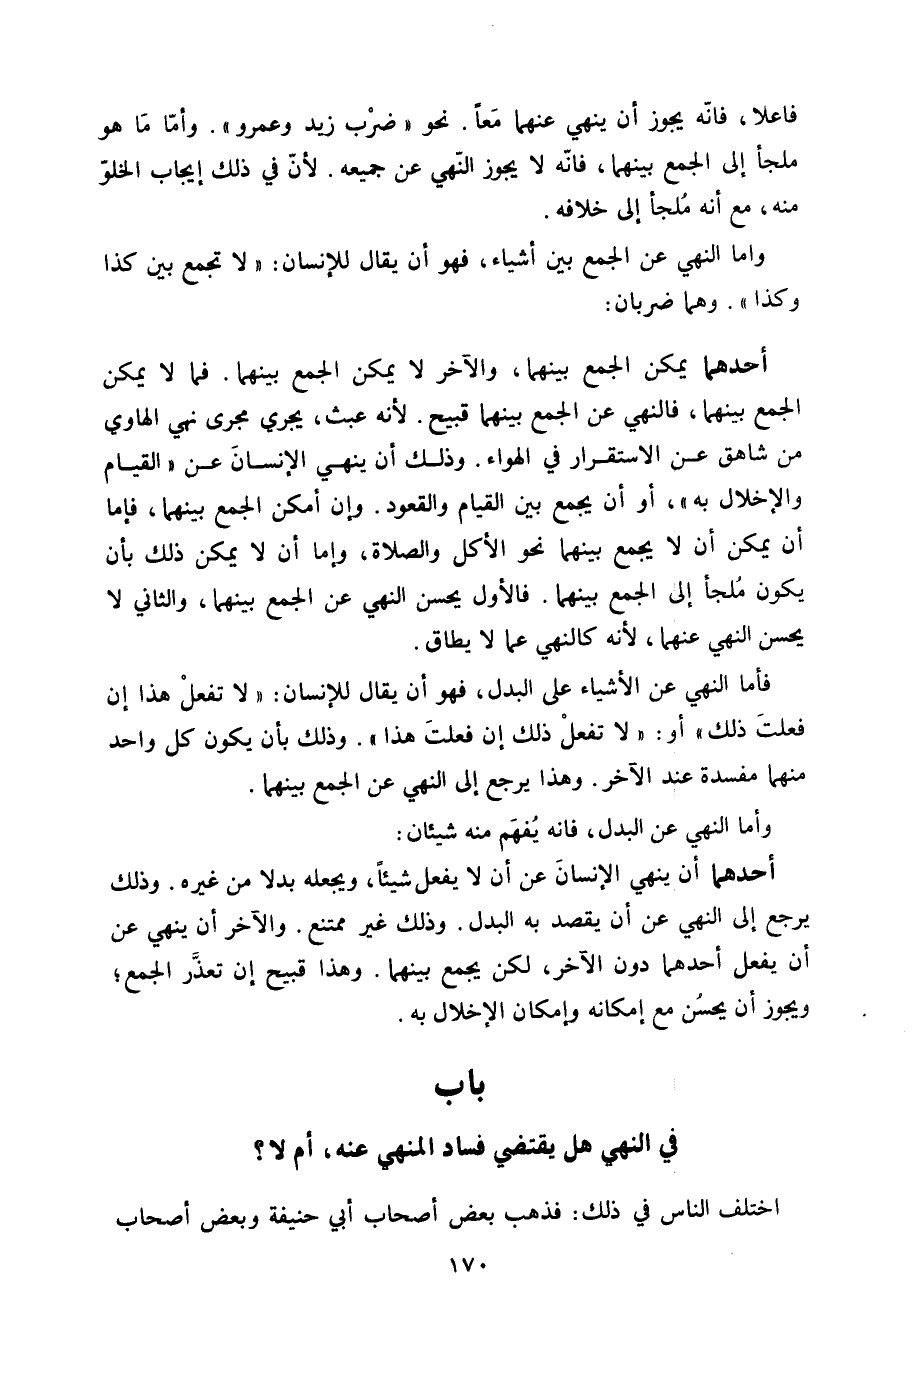 فاعلا، فانّه يجوز أن ينهي عنهما مَعاً. نحو «ضرْب زيد وعمرو». وأمّا مَا هو
ملجأ إلى الجمع بينهما، فانّه لا يجوز النّهي عن جميعه. لأنّ في ذلك إيجاب الخلوّ
منه، مع أنه مُلجأ إلى خلافه.
واما النهي عن الجمع بين أشياء، فهو أن يقال للإنسان: «لا تجمع بين كذا
وكذا». وهما ضربان:
أحدهما يمكن الجمع بينهما، والآخر لا يمكن الجمع بينهما. فما لا يمكن
الجمع بينهما، فالنهي عن الجمع بينهما قبيح. لأنه عبث، يجري مجرى نهي الهاوي
من شاهق عن الاستقرار في الهواء. وذلك أن ينهي الإنسانَ عن «القيام
والإخلال به»، أو أن يجمع بين القيام والقعود. وإن أمكن الجمع بينهما، فإما
أن يمكن أن لا يجمع بينهما نحو الأكل والصلاة، وإما أن لا يمكن ذلك بأن
يكون مُلجأ إلى الجمع بينهما. فالأول يحسن النهي عن الجمع بينهما، والثاني لا
يحسن النهي عنهما، لأنه كالنهي عما لا يطاق.
فأما النهي عن الأشياء على البدل، فهو أن يقال للإنسان: «لا تفعلْ هذا إن
فعلتَ ذلك» أو: «لا تفعلْ ذلك إن فعلتَ هذا». وذلك بأن يكون كل واحد
منهما مفسدة عند الآخر. وهذا يرجع إلى النهي عن الجمع بينهما.
وأما النهي عن البدل، فانه يُفهَم منه شيئان:
أحدهما أن ينهي الإنسانَ عن أن لا يفعل شيئاً، ويجعله بدلا من غيره. وذلك
يرجع إلى النهي عن أن يقصد به البدل. وذلك غير ممتنع. والآخر أن ينهي عن
أن يفعل أحدهما دون الآخر، لكن يجمع بينهما. وهذا قبيح إن تعذَّر الجمع؛
ويجوز أن يحسُن مع إمكانه وإمكان الإخلال به.
باب
في النهي هل يقتضي فساد المنهي عنه، أم لا؟
اختلف الناس في ذلك: فذهب بعض أصحاب أبي حنيفة وبعض أصحاب
١٧٠